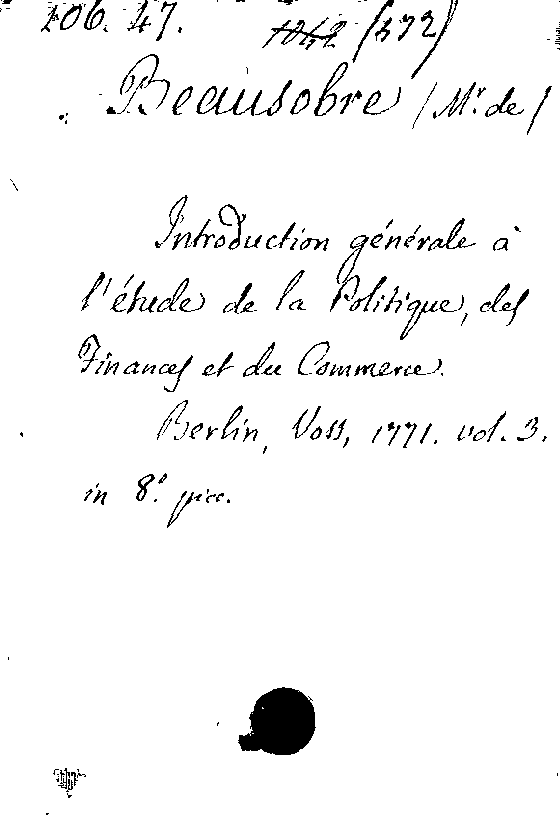 206. 47. 1042 (472)
Beausobre (Mr. de)
Introduction générale à
l'étude de la Politique, des
Finances et du Commerce.
Berlin, Voss, 1771. vol. 3.
in 8.° picc.